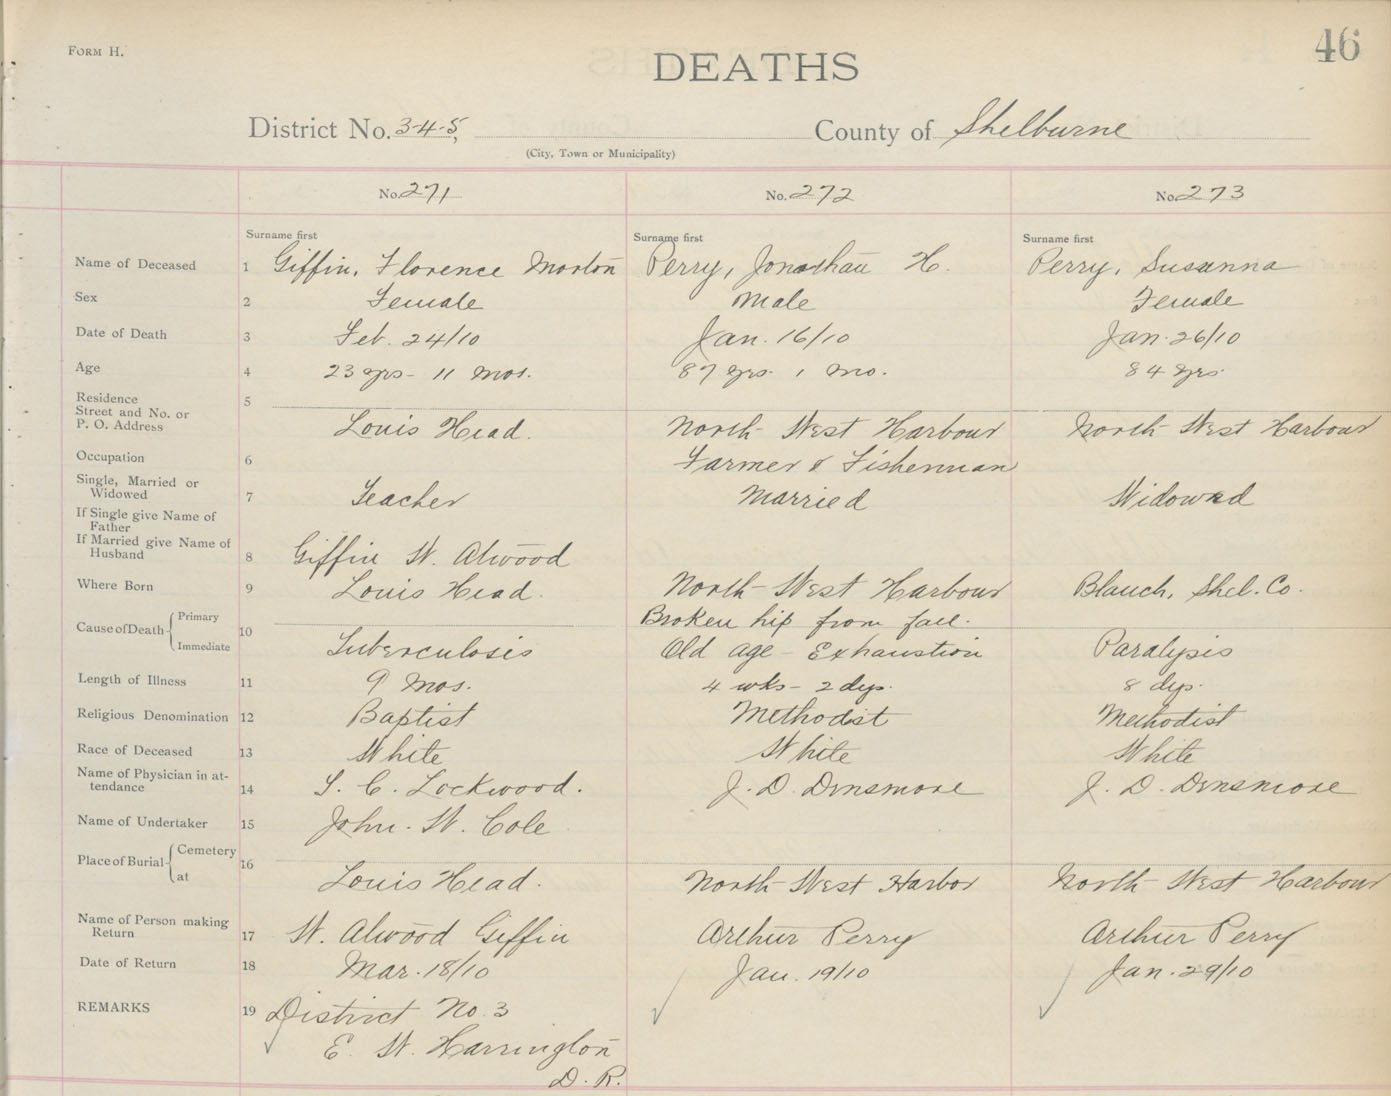 FORM H.
DEATHS
46
District No. 3-4-5,
County of Shelburne
(City, Town or Municipality)
No. 271
No. 272
No. 273
Surname first
Surname first
Surname first
Name of Deceased 1 Giffin, Florence Morton Perry, Jonathan H. Perry, Susanna
Sex 2 Female Male Female
Date of Death 3 Feb. 24/10 Jan. 16/10 Jan. 26/10
Age 4 23 yrs - 11 mos. 87 yrs. 1 mo. 84 yrs.
Residence 5
Street and No. or
P. O. Address Louis Head. North-West Harbour North-West Harbour
Occupation 6 Farmer & Fisherman
Single, Married or
Widowed 7 Teacher Married Widowed
If Single give Name of
Father
If Married give Name of
Husband 8 Giffin W. Atwood
Where Born 9 Louis Head. North-West Harbour Blanch, Shel. Co.
Cause of Death Primary 10 Broken hip from fall.
Immediate Tuberculosis Old age - Exhaustion Paralysis
Length of Illness 11 9 mos. 4 wks - 2 dys. 8 dys.
Religious Denomination 12 Baptist Methodist Methodist
Race of Deceased 13 White White White
Name of Physician in at-
tendance 14 T. C. Lockwood. J. D. Densmore J. D. Densmore
Name of Undertaker 15 John. W. Cole
Place of Burial Cemetery 16
at Louis Head. North-West Harbor North-West Harbour
Name of Person making
Return 17 W. Atwood Giffin Arthur Perry Arthur Perry
Date of Return 18 Mar. 18/10 Jan. 19/10 Jan. 29/10
REMARKS 19 District No. 3
E. W. Harrington
D. R.